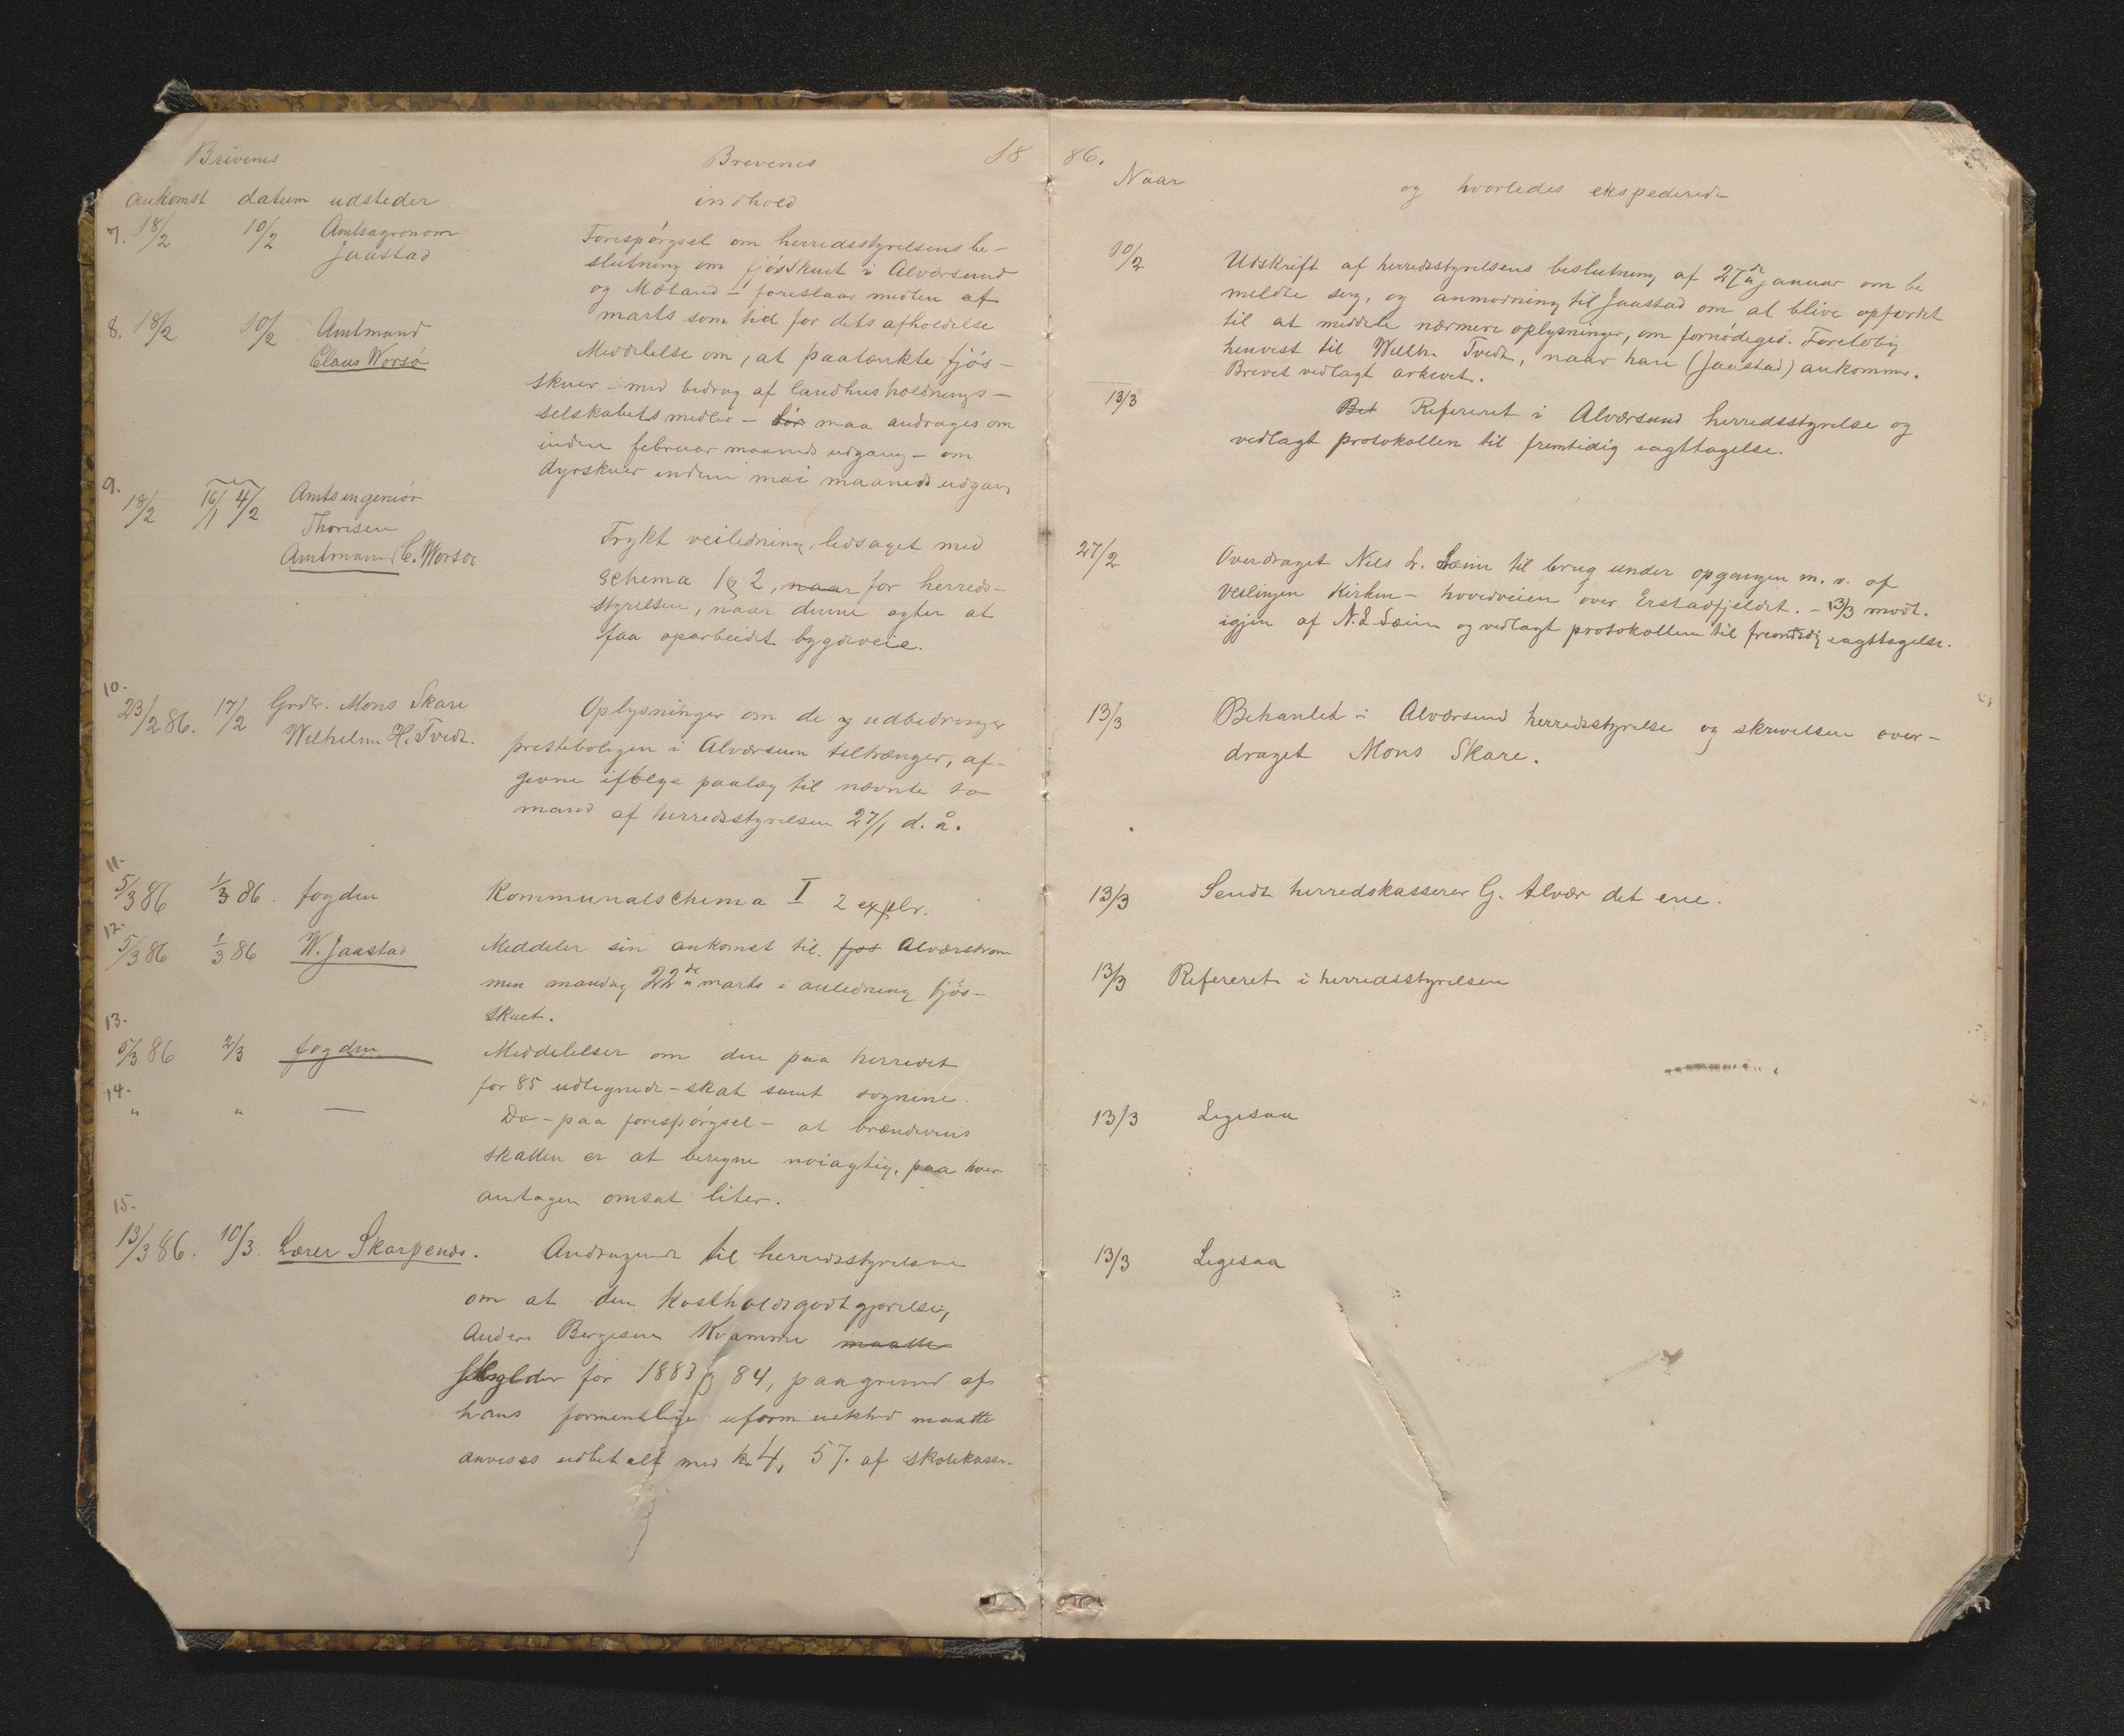 Brevenes
ankomst datum udsteder
Brevenes
indhold
18
7. 18/2 10/2 Amtsagronom
Jaastad
Forespørgsel om herredsstyrelsens be-
slutning om fjøsskuet i Alværsund
og Mæland - foreslaar midten af
marts som tid for dets afholdelse
8. 18/2 10/2 Amtmand
Claus Worsö
Meddelelse om, at paatænkte fjös-
skuer - med bidrag af landhusholdnings-
selskabets midler - bör maa andrages om
inden februar maaneds udgang - om
dyrskuer inden mai maaneds udgang
9. 18/2 16/1 4/2 Amtsingeniör
Thoresen
Amtmand C. Worsøe
Trykt veiledning, ledsaget med
schema 1 & 2, naar for herreds-
styrelsen, naar denne agter at
faa oparbeidet bygdeveie.
10. 23/2 86. 17/2 Grdbr. Mons Skare
Wilhelm H. Tvedt.
Oplysninger om de udbedringer
presteboligen i Alværsum tiltrænger, af-
givne ifølge paalæg til nævnte to
mænd af herredsstyrelsen 27/1 d. å.
11. 5/3 86 1/3 86. fogden
Kommunalschema I 2 explr.
12. 5/3 86 1/3 86 W. Jaastad
Meddeler sin ankomst til fjøs Alværstrøm
men mandag 22de marts i anledning fjös-
skuet.
13. 5/3 86 2/3 fogden
Meddelelser om den paa herredet
for 85 udlignede - skat samt sognene.
14. " " —
Do - paa forespørgsel - at brændevins
skatten er at beregne nøiagtig, paa hver
antagen omsat liter.
15. 13/3 86. 10/3. Lærer Skarpenes.
Andragende til herredsstyrelsen
om at den Kostholdsgodtgjørelse,
Anders Børgesen Kvamme maatte
skylder for 1883 & 84, paagrund af
hans formentlige uformuenhed maatte
anvises udbetalt med kr. 4, 57. af skolekassen
86.
Naar og hvorledes ekspederede
10/2 Udskrift af herredsstyrelsens beslutning af 27de januar om be
meldte sag, og anmodning til Jaastad om at blive opfordt
til at meddele nærmere oplysninger, om fornödiges. Foreløbig
henvist til Wilh. Tvedt, naar han (Jaastad) ankommer.
Brevet vedlagt arkivet.
13/3 Bet Refereret i Alværsund herredsstyrelse og
vedlagt protokollen til fremtidig iagttagelse.
27/2 Overdraget Nils L. Sæim til brug under opgangen m. v. af
veilinjen Kirken - hovedveien over Erstadfjeldet. - 13/3 modt.
igjen af N. L. Sæim og vedlagt protokollen til fremtidig iagttagelse.
13/3 Behanlet i Alværsund herredsstyrelse og skrivelsen over-
draget Mons Skare.
13/3 Sendt herredskasserer G. Alvær det ene.
13/3 Refereret i herredsstyrelsen
13/3 Ligesaa
13/3 Ligesaa